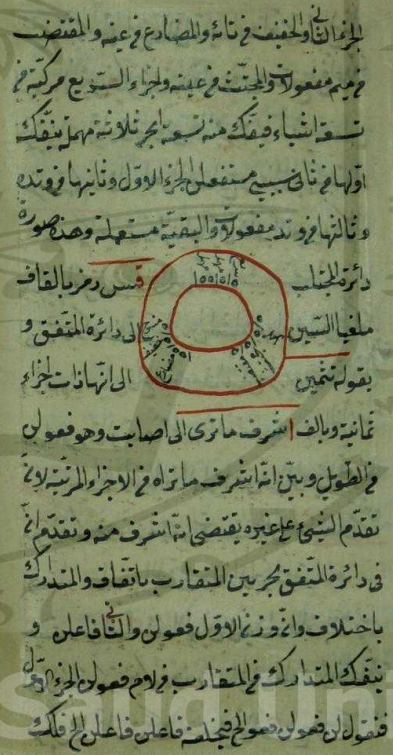 الجزء الثاني والخفيف في تائه والمضارع في عينه والمقتضب
في ميم مفعولات والمجتث في عينه واجزاء السريع مركبة في
تسعة اشياء فيفك منه تسعة ابحر ثلاثة مهملة ينفك
اولها في ثاني سببي مستفعلن الجزء الاول وثانيها في وتده
وثالثها في وتد مفعولات والبقية مستعملة وهذه صورة
دائرة المجتلب قس رمز بالقاف
ملغيا السين الى دائرة المتفق و
بقوله تثمين الى انها ذات اجزاء
ثمانية وبالف اشرف ما ترى الى اصابت وهو فعولن
في الطويل وبين انه اشرف ما تراه في الاجزاء المرتبة لان
تقدم الشيء على غيره يقتضي انه اشرف منه وتقدم ان
في دائرة المتفق بحرين المتقارب باتفاق والمتدارك
باختلاف وان وزن الاول فعولن والثاني فاعلن و
ينفك المتدارك في المتقارب في لام فعولن الجزء الاول
فتقول لن فعولن فعو الخ فيخلفه فاعلن فاعلن الخ فلك